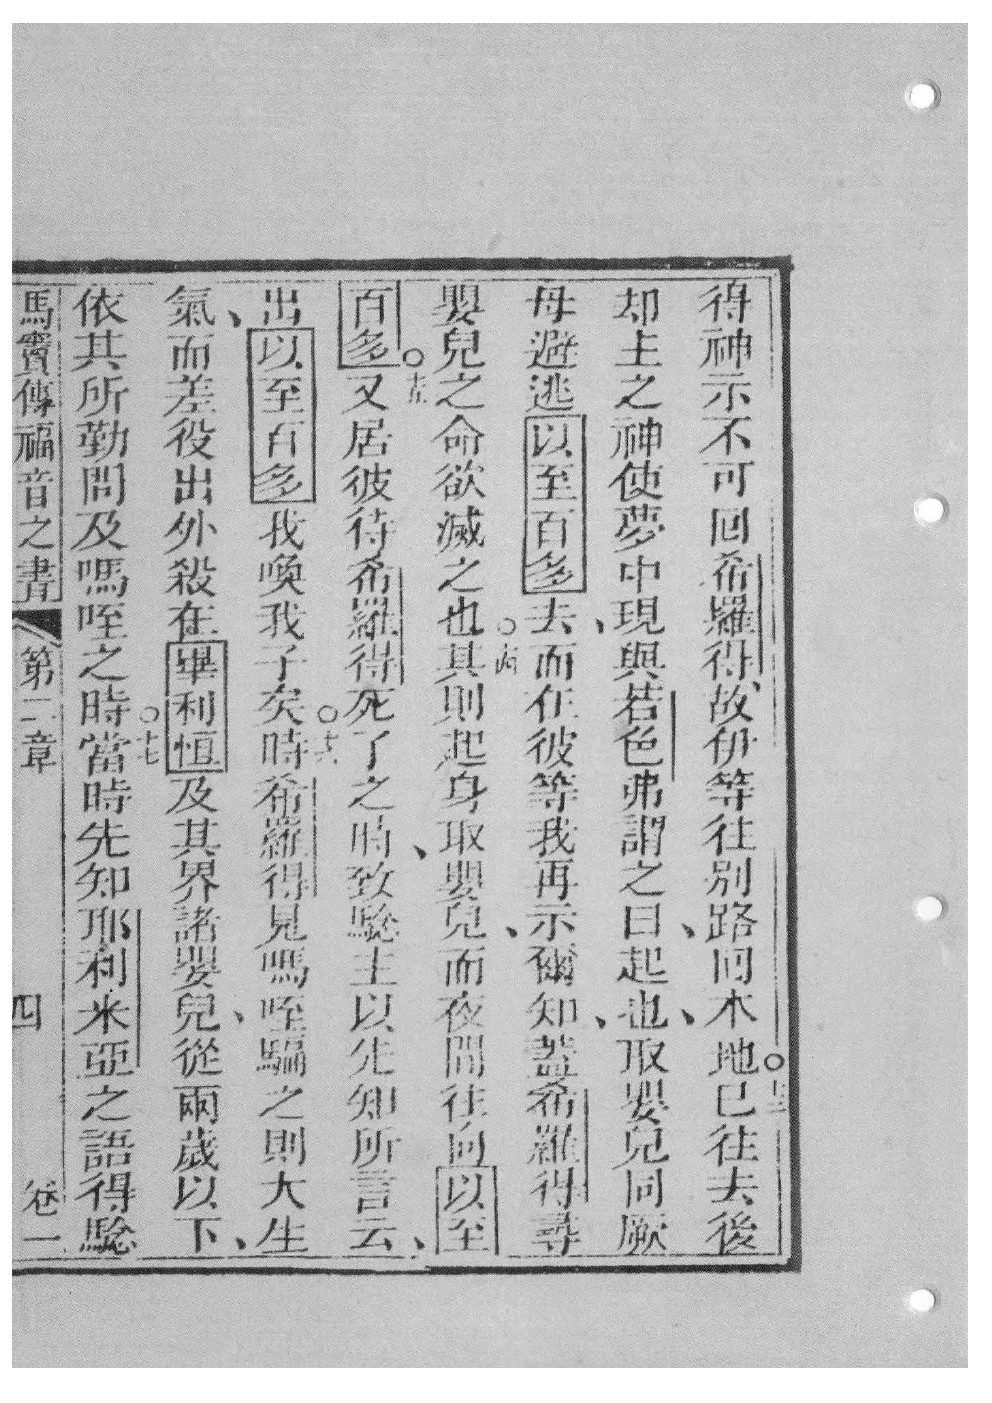 得神示不可回希羅得、故伊等往別路回本地○十三已往去後
却主之神使夢中現與若色弗謂之曰、起也、取嬰兒同厥
母避逃以至百多去、而在彼等我再示爾知、蓋希羅得尋
嬰兒之命欲滅之也○十四其則起身取嬰兒、而夜間往向以至
百多○十五又居彼待希羅得死了之時、致驗主以先知所言云、
出以至百多我喚我子矣○十六時希羅得見嗎咥騙之則大生
氣、而差役出外殺在畢利恒及其界諸嬰兒、從兩歲以下、
依其所勤問及嗎咥之時○十七當時先知耶利米亞之語得驗
馬竇傳福音之書 第二章 四 卷一